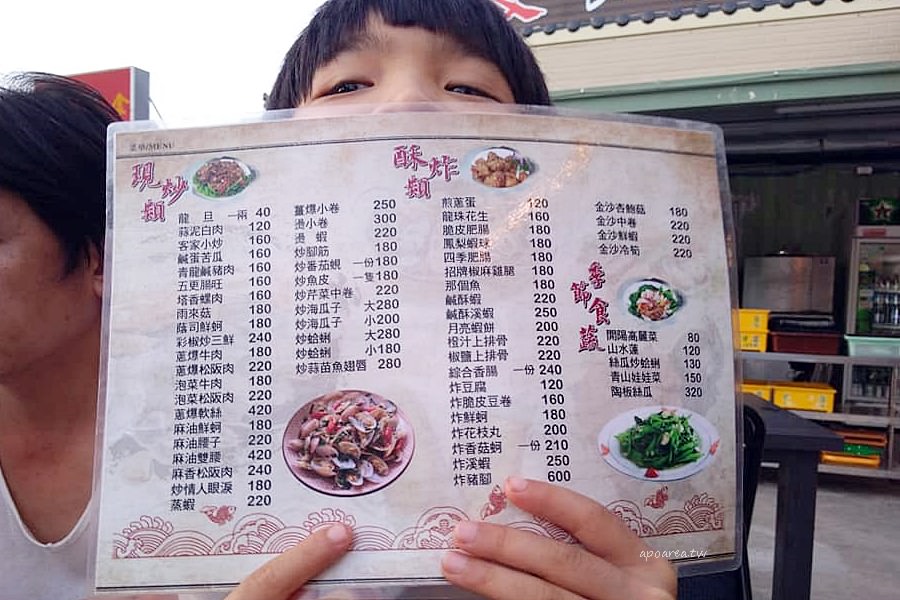 菜單/MENU
現炒類
龍旦 一兩 40
蒜泥白肉 120
客家小炒 160
鹹蛋苦瓜 160
青龍鹹豬肉 160
五更腸旺 160
塔香螺肉 160
雨來菇 180
蔭司鮮蚵 180
彩椒炒三鮮 240
蔥爆牛肉 180
蔥爆松阪肉 220
泡菜牛肉 180
泡菜松阪肉 220
蔥爆軟絲 420
麻油鮮蚵 180
麻油腰子 220
麻油雙腰 420
麻香松阪肉 240
炒情人眼淚 180
蒸蝦 220
薑爆小卷 250
燙小卷 300
燙蝦 220
炒腳筋 180
炒番茄蜆 一份180
炒魚皮 一隻180
炒芹菜中卷 220
炒海瓜子 大280
炒海瓜子 小200
炒蛤蜊 大280
炒蛤蜊 小180
炒蒜苗魚翅唇 280
酥炸類
煎蔥蛋 120
龍珠花生 160
脆皮肥腸 180
鳳梨蝦球 180
四季肥腸 180
招牌椒麻雞腿 180
那個魚 180
鹹酥蝦 220
鹹酥溪蝦 250
月亮蝦餅 200
橙汁上排骨 220
椒鹽上排骨 220
綜合香腸 一份 240
炸豆腐 120
炸脆皮豆卷 160
炸鮮蚵 180
炸花枝丸 200
炸香菇蚵 一份 210
炸溪蝦 250
炸豬腳 600
金沙杏鮑菇 180
金沙中卷 220
金沙鮮蝦 220
金沙冷筍 220
季節食蔬
開陽高麗菜 80
山水蓮 120
絲瓜炒蛤蜊 130
青山娃娃菜 150
陶板絲瓜 320
apoarea.tw/